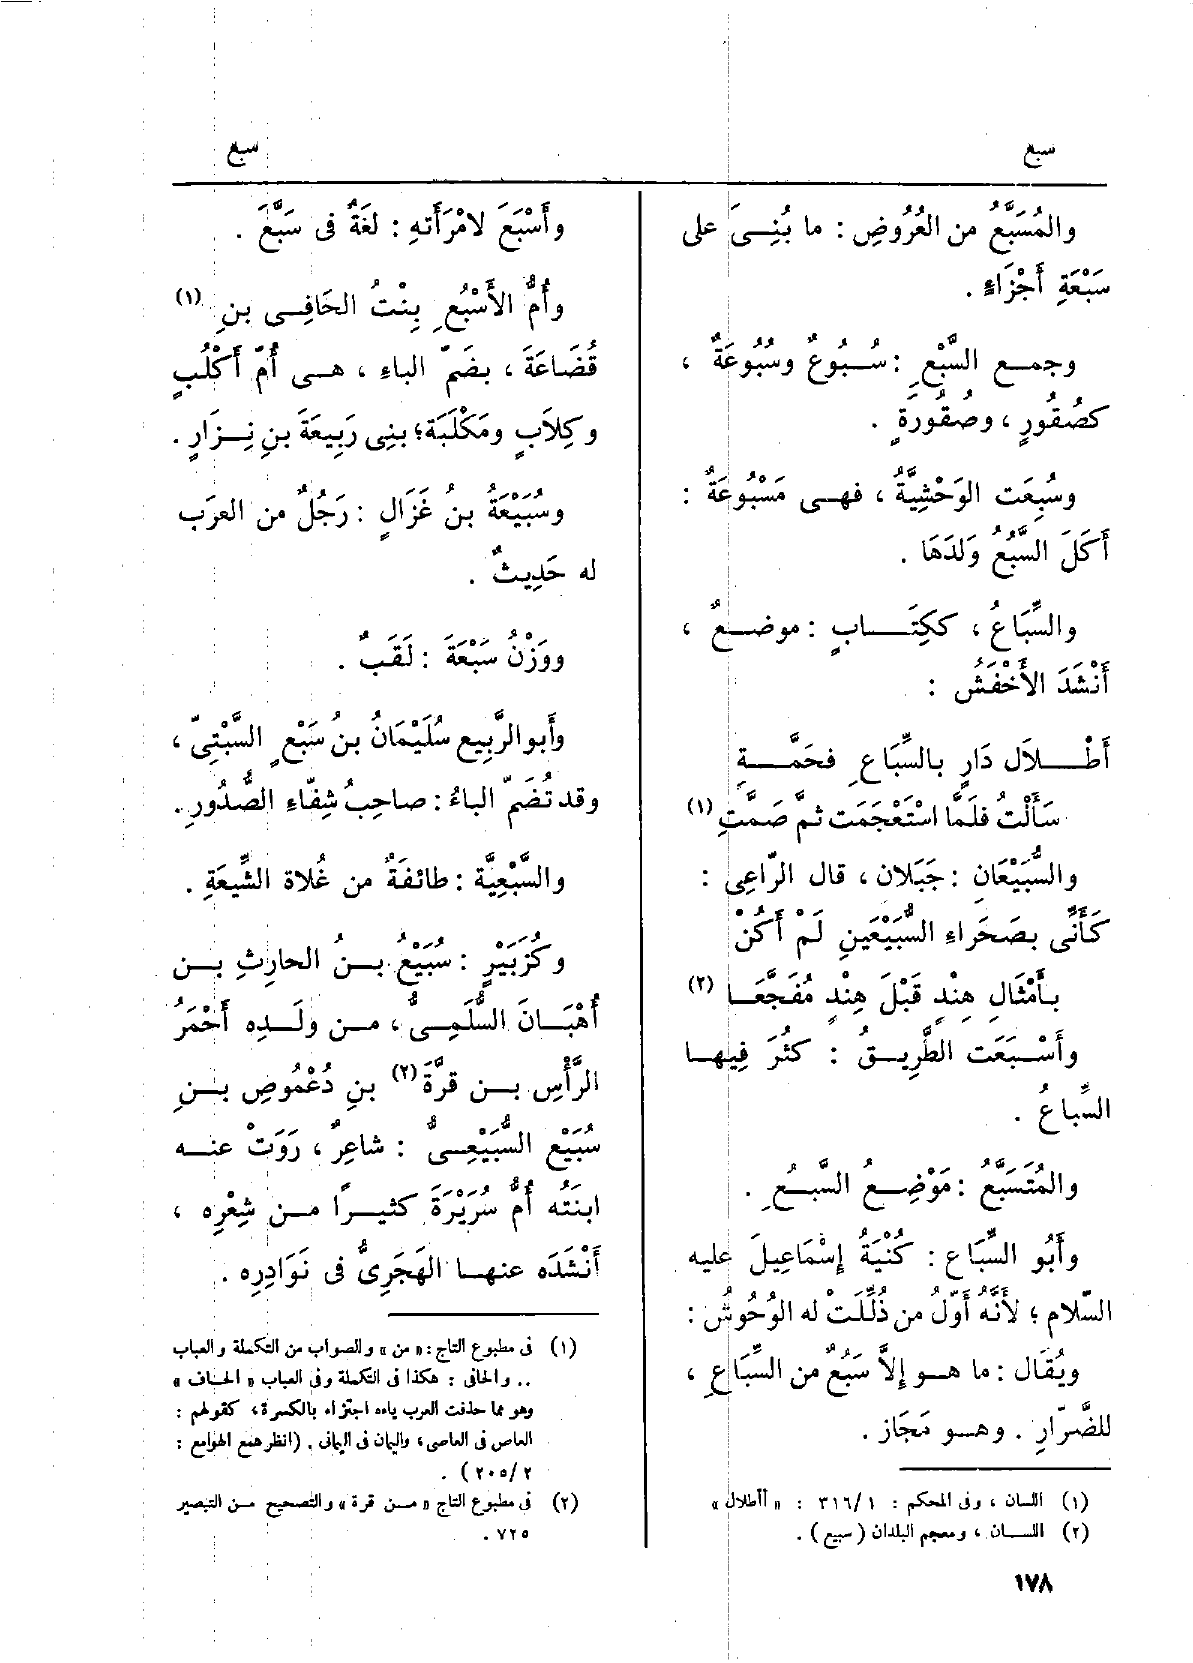 سبع
سبع
والمُسَبَّعُ من العُرُوضِ : ما بُنِىَ على
سَبْعَةِ أَجْزَاءٍ .
وجمع السَّبْعِ : سُبُوعٌ وسُبُوعَةٌ ،
كصُقُورٍ ، وصُقُورَةٍ .
وسُبِعَت الوَحْشِيَّةُ ، فهى مَسْبُوعَةٌ :
أَكَلَ السَّبُعُ وَلَدَهَا .
والسِّبَاعُ ، ككِتَابٍ : موضعٌ ،
أَنْشَدَ الأَخْفَشُ :
أَطْلاَل دَارٍ بالسِّبَاعِ فحَمَّةِ
سَأَلْتُ فلَمَّا اسْتَعْجَمَت ثمَّ صَمَّتِ (١)
والسُّبَيْعَانِ : جَبَلان ، قال الرّاعِى :
كَأَنِّى بصَحْراءِ السُّبَيْعَينِ لَمْ أَكُنْ
بأَمْثَالِ هِنْدٍ قَبْلَ هِنْدٍ مُفَجَّعَا (٢)
وأَسْبَعَت الطَّرِيقُ : كثُرَ فِيها
السِّباعُ .
والمُتَسَبَّعُ : مَوْضِعُ السَّبُعِ .
وأَبُو السِّبَاع : كُنْيَةُ إِسْمَاعِيلَ عليه
السّلام ؛ لأَنَّه أَوّلُ من ذُلِّلَتْ له الوُحُوشُ :
ويُقَال : ما هو إِلاَّ سَبُعٌ من السِّبَاعِ ،
للضَّرّارِ . وهو مَجَاز .
(١) اللسان ، وفى المحكم : ٣١٦/١ : « أأطلال »
(٢) اللسان ، ومعجم البلدان ( سبيع ) .
١٧٨
وأَسْبَعَ لامْرَأَتهِ : لغَةٌ فى سَبَّعَ .
وأُمُّ الأَسْبُعِ بِنْتُ الحَافِى بنِ (١)
قُضَاعَةَ ، بضَمّ الباءِ ، هى أُمّ أَكْلُبٍ
وكِلاَبٍ ومَكْلَبَة؛ بنِى رَبِيعَةَ بنِ نِزَارٍ .
وسُبَيْعَةُ بنُ غَزَالٍ : رَجُلٌ من العرَب
له حَدِيثٌ .
ووَزْنُ سَبْعَةَ : لَقَبٌ .
وأَبو الرَّبِيع سُلَيْمَانُ بنُ سَبْعٍ السَّبْتِىّ ،
وقد تُضَمّ الباءُ : صاحِبُ شِفَاءِ الصُّدُورِ .
والسَّبْعِيَّة : طائفَةٌ من غُلاة الشِّيعَةِ .
وكزُبَيْرٍ : سُبَيْعُ بنُ الحارِثِ بن
أُهْبَانَ السُّلَمِىُّ ، من ولَدِه أَحْمَرُ
الرَّأْسِ بن قرَّةَ (٢) بنِ دُعْمُوصِ بنِ
سُبَيْعِ السُّبَيْعِىُّ : شاعِرٌ ، رَوَتْ عنه
ابنَتُه أُمُّ سُرَيْرَةَ كثيرًا من شِعْرِه ،
أَنْشَدَه عنها الهَجَرِىُّ فى نَوَادِرِه .
(١) فى مطبوع التاج : « من » والصواب من التكملة والعباب
.. والحافى : هكذا فى التكملة وفى العباب « الحاف »
وهو مما حذفت العرب ياءه اجتزاء بالكسرة، كقولهم :
العاص فى العاصى، واليمان فى اليمانى . (انظر همع الهوامع :
٢٠٥/٢) .
(٢) فى مطبوع التاج « من قرة » والتصحيح من التبصير
٧٢٥ .